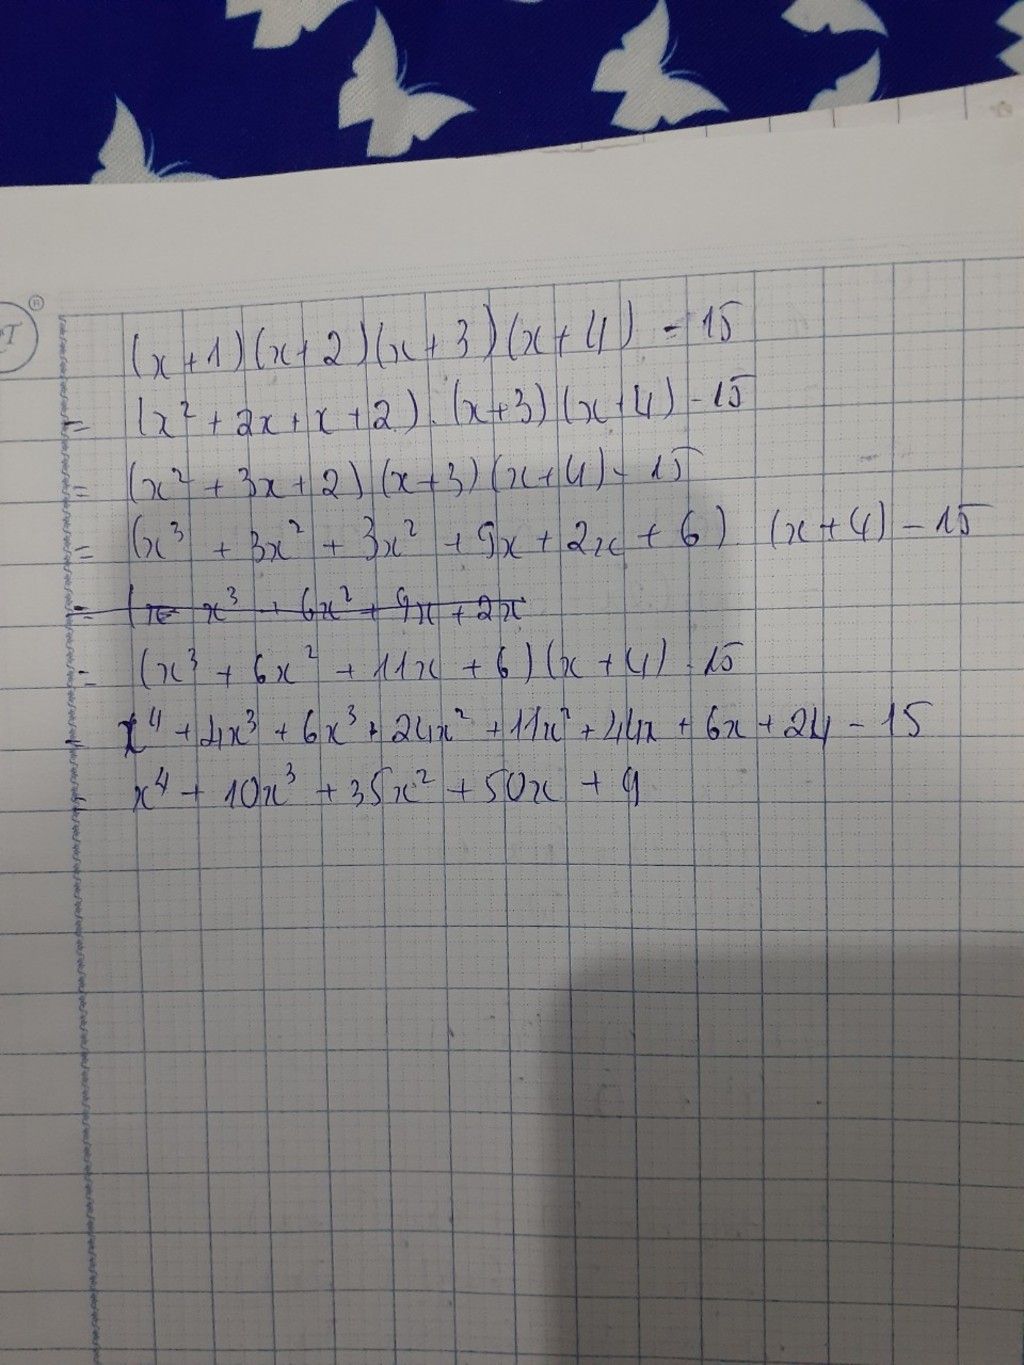 (x+1)(x+2)(x+3)(x+4) - 15
= (x² + 2x + x + 2) . (x+3)(x+4) - 15
= (x² + 3x + 2)(x+3)(x+4) - 15
= (x³ + 3x² + 3x² + 9x + 2x + 6) (x+4) - 15
= (x x³ + 6x² + 9x + 2x
= (x³ + 6x² + 11x + 6)(x+4) - 15
= x⁴ + 4x³ + 6x³ + 24x² + 11x² + 44x + 6x + 24 - 15
= x⁴ + 10x³ + 35x² + 50x + 9